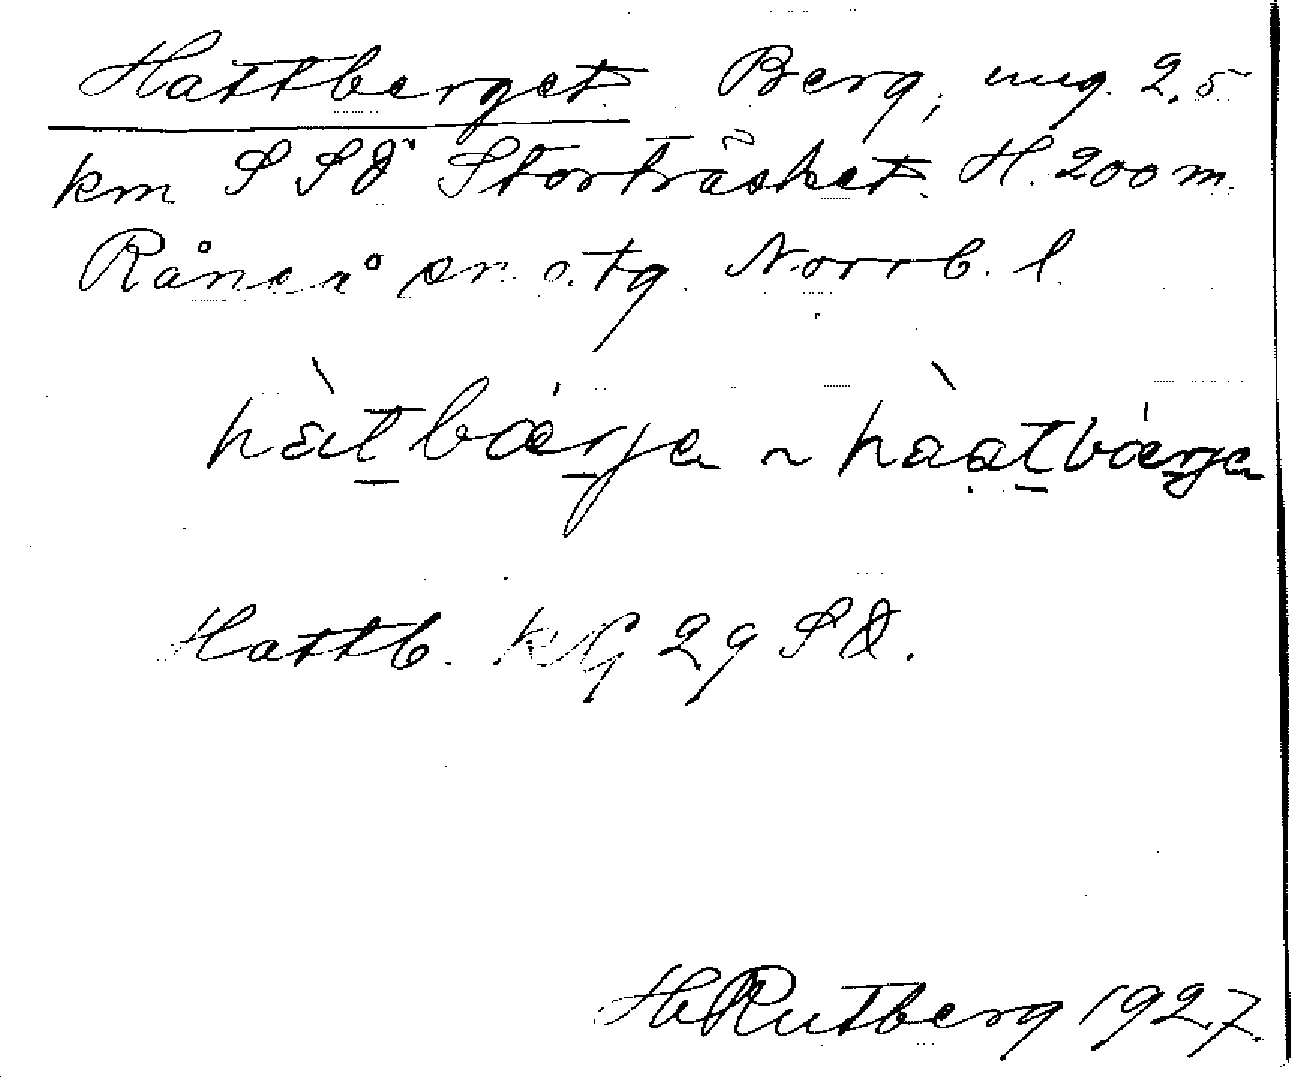 Hattberget Berg, ung. 2,5
km SSÖ Storträsket. H. 200 m.
Råneå sn o. tg. Norrb. l.
hàtbǽrja ~ hàatbǽrja
Hattb. KG 29 SÖ.
H Rutberg 1927.